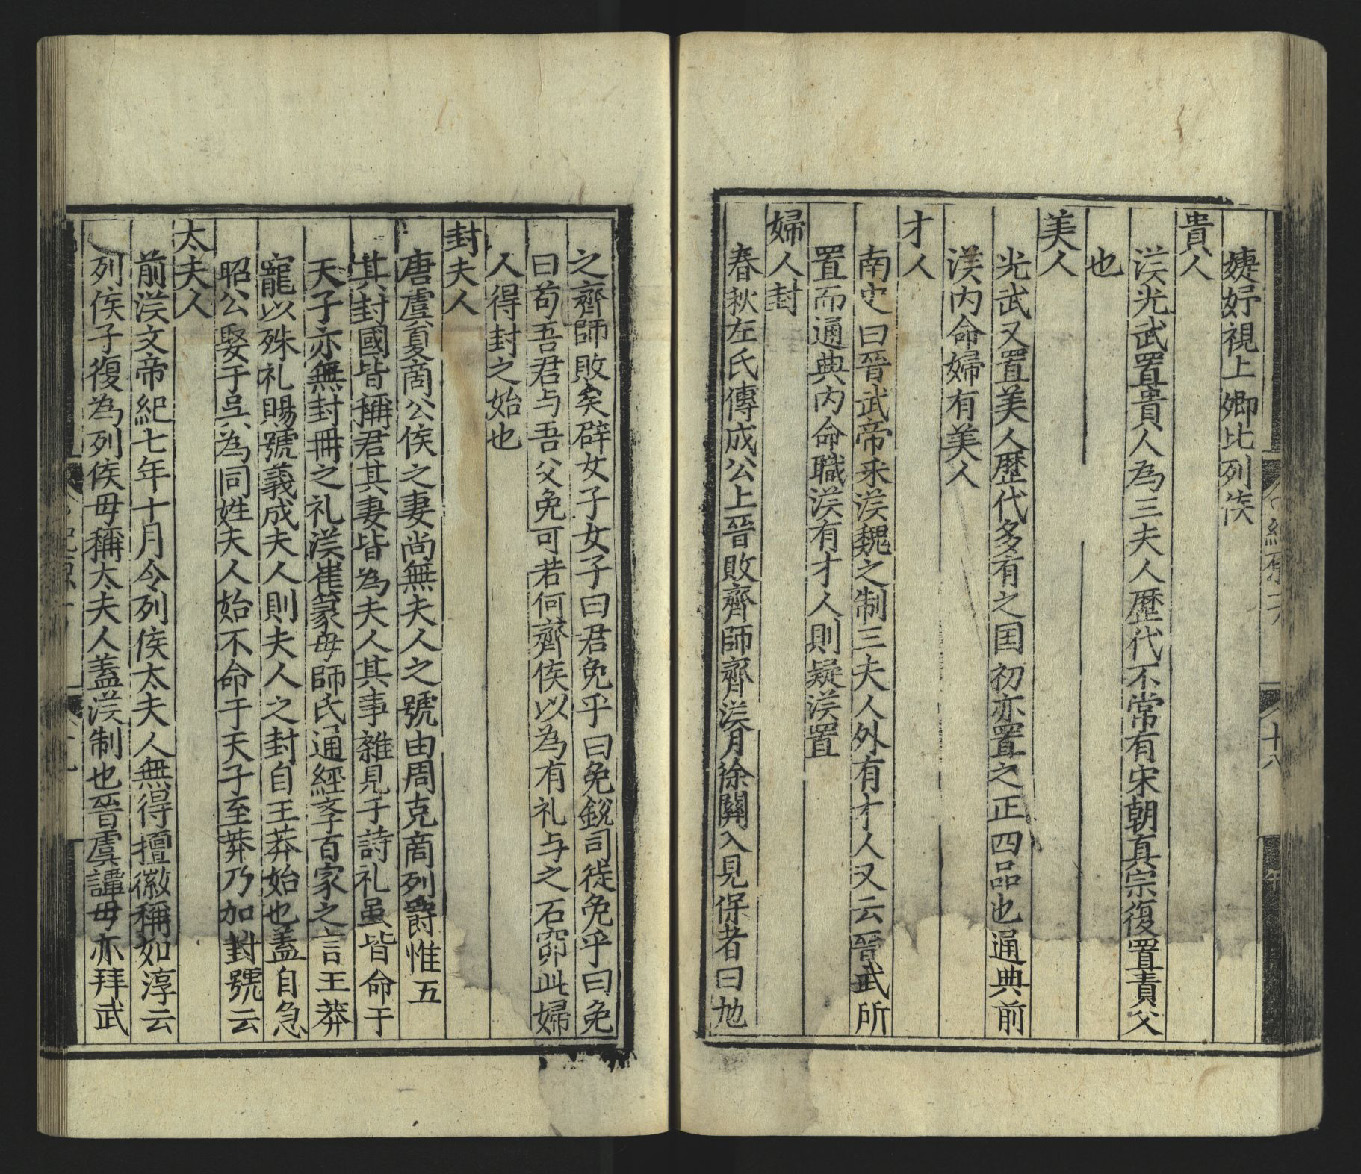 婕妤視上卿比列侯
貴人
漢光武置貴人為三夫人歷代不常有宋朝真宗復置貴父
也
美人
光武又置美人歷代多有之国初亦置之正四品也通典前
漢內命婦有美人
才人
南史曰晉武帝采漢魏之制三夫人外有才人又云晉武所
置而通典內命職漢有才人則疑漢置
婦人封
春秋左氏傳成公上晉敗齊師齊侯自徐關入見保者曰勉
之齊師敗矣辟女子女子曰君免乎曰免銳司徒免乎曰免
曰苟吾君与吾父免可若何齊侯以為有礼与之石窌此婦
人得封之始也
封夫人
唐虞夏商公侯之妻尚無夫人之號由周克商列爵惟五
其封國皆稱君其妻皆為夫人其事雜見于詩礼虽皆命于
天子亦無封冊之礼漢崔篆母師氏通經孝百家之言王莽
寵以殊礼賜號義成夫人則夫人之封自王莽始也蓋自急
昭公娶于吳為同姓夫人始不命于天子至莽乃加封號云
太夫人
前漢文帝紀七年十月令列侯太夫人無得擅徵稱如淳云
列侯子復為列侯母稱太夫人蓋漢制也晉虞譚母亦拜武